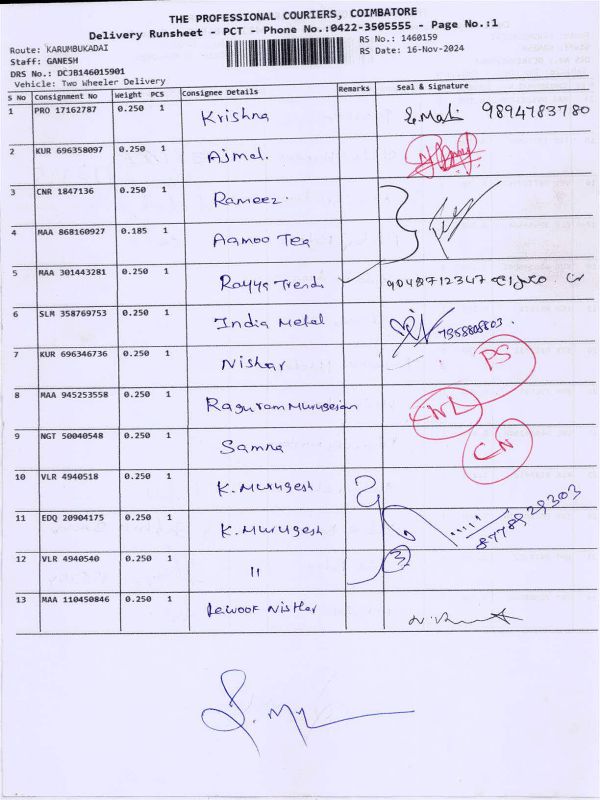 THE PROFESSIONAL COURIERS, COIMBATORE
Delivery Runsheet - PCT - Phone No.:0422-3505555 - Page No.:1
Route: KARUMBUKADAI
RS No.: 1460159
Staff: GANESH
RS Date: 16-Nov-2024
DRS No.: DCJB146015901
Vehicle: Two Wheeler Delivery
S No Consignment No Weight PCS Consignee Details Remarks Seal & Signature
1 PRO 17162787 0.250 1 Krishna 9894783780
2 KUR 696358097 0.250 1 Ajmal.
3 CNR 1847136 0.250 1 Rameez.
4 MAA 868160927 0.185 1 Aamoo Tea
5 MAA 301443281 0.250 1 Rayya Trends
6 SLM 358769753 0.250 1 India Metal
7 KUR 696346736 0.250 1 Nishar PS
8 MAA 945253558 0.250 1 Raguram Murugesan CNL
9 NGT 50040548 0.250 1 Samna CN
10 VLR 4940518 0.250 1 K. Murugesh
11 EDQ 20904175 0.250 1 K. Murugesh 8778929303
12 VLR 4940540 0.250 1 " 3
13 MAA 110450846 0.250 1